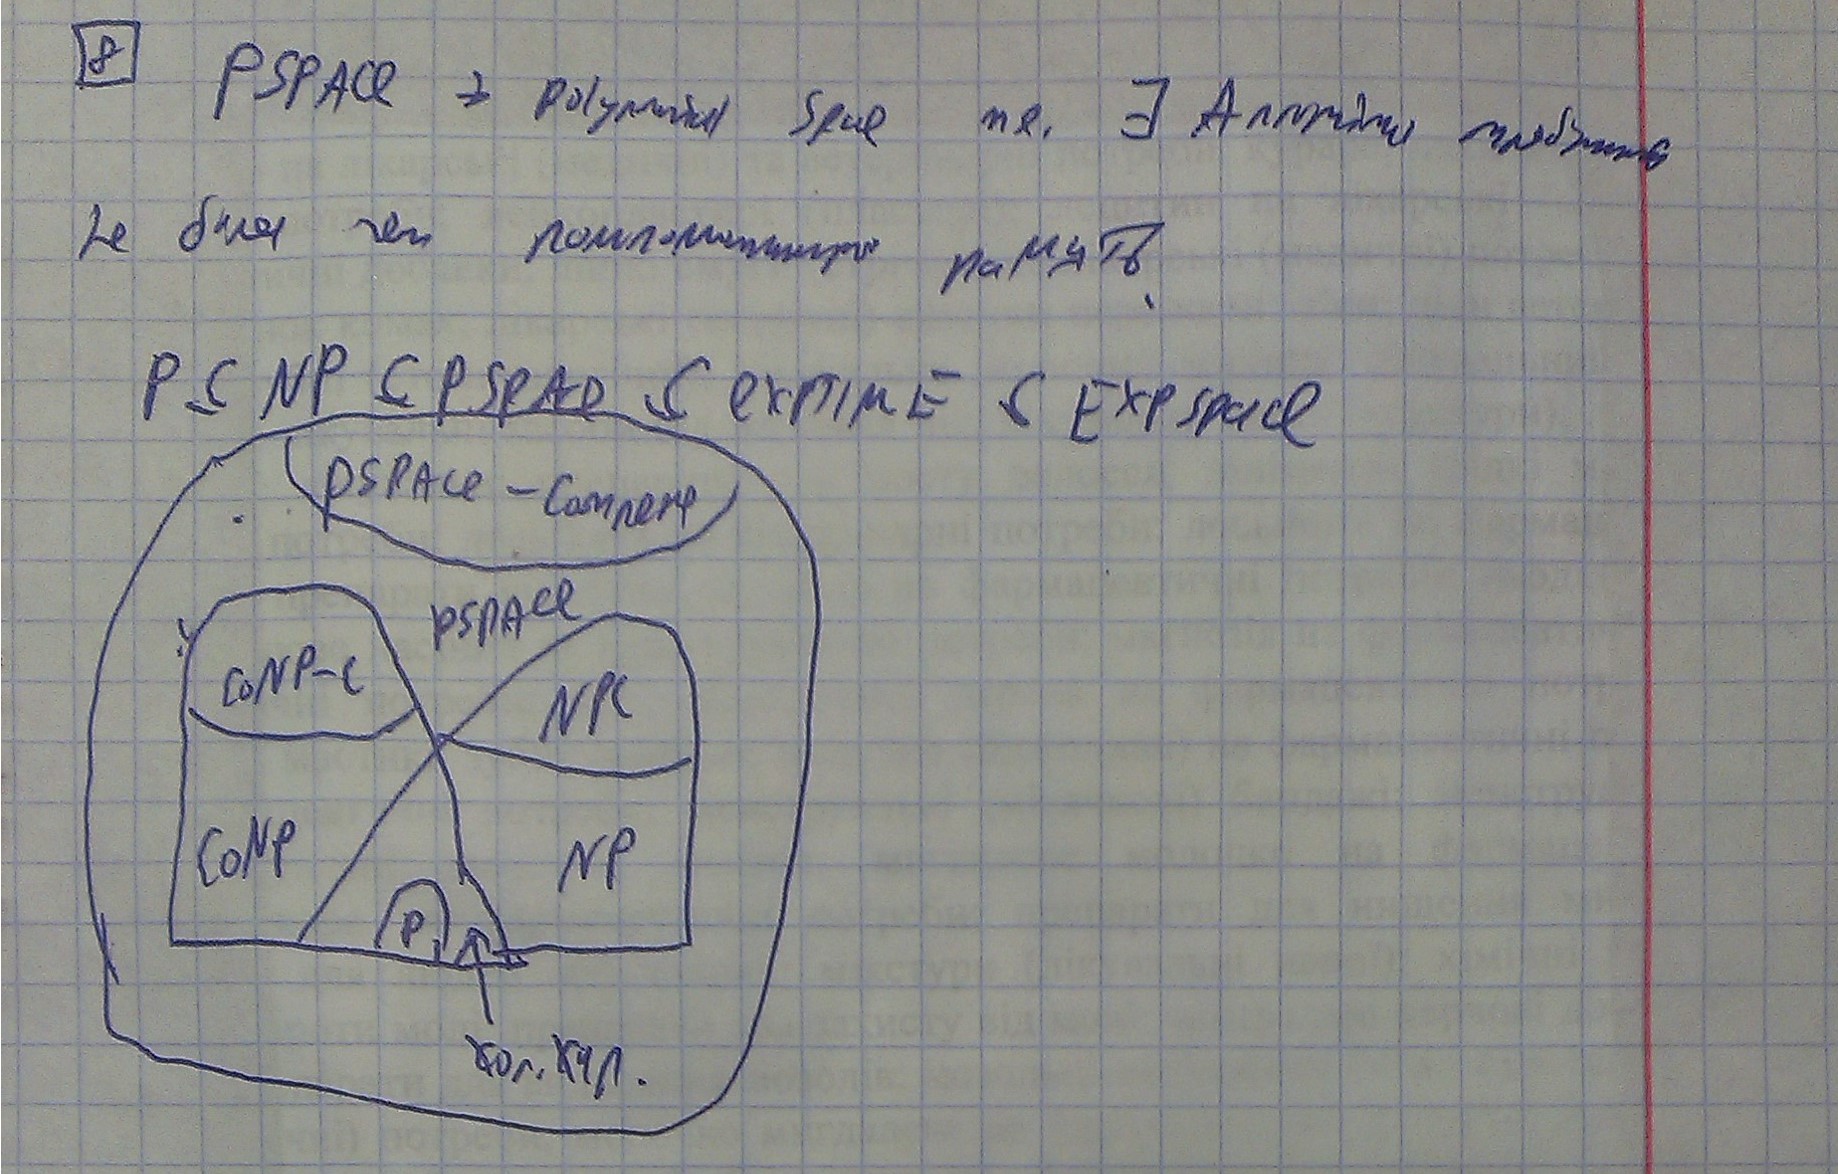 8
PSPACE → polynomial space т.е. ∃ Алгоритм требующий
не более чем полиномиальную память.
P ⊆ NP ⊆ PSPACE ⊆ EXPTIME ⊆ EXPSPACE
PSPACE - Complete
PSPACE
CoNP-C NPC
CoNP NP
P